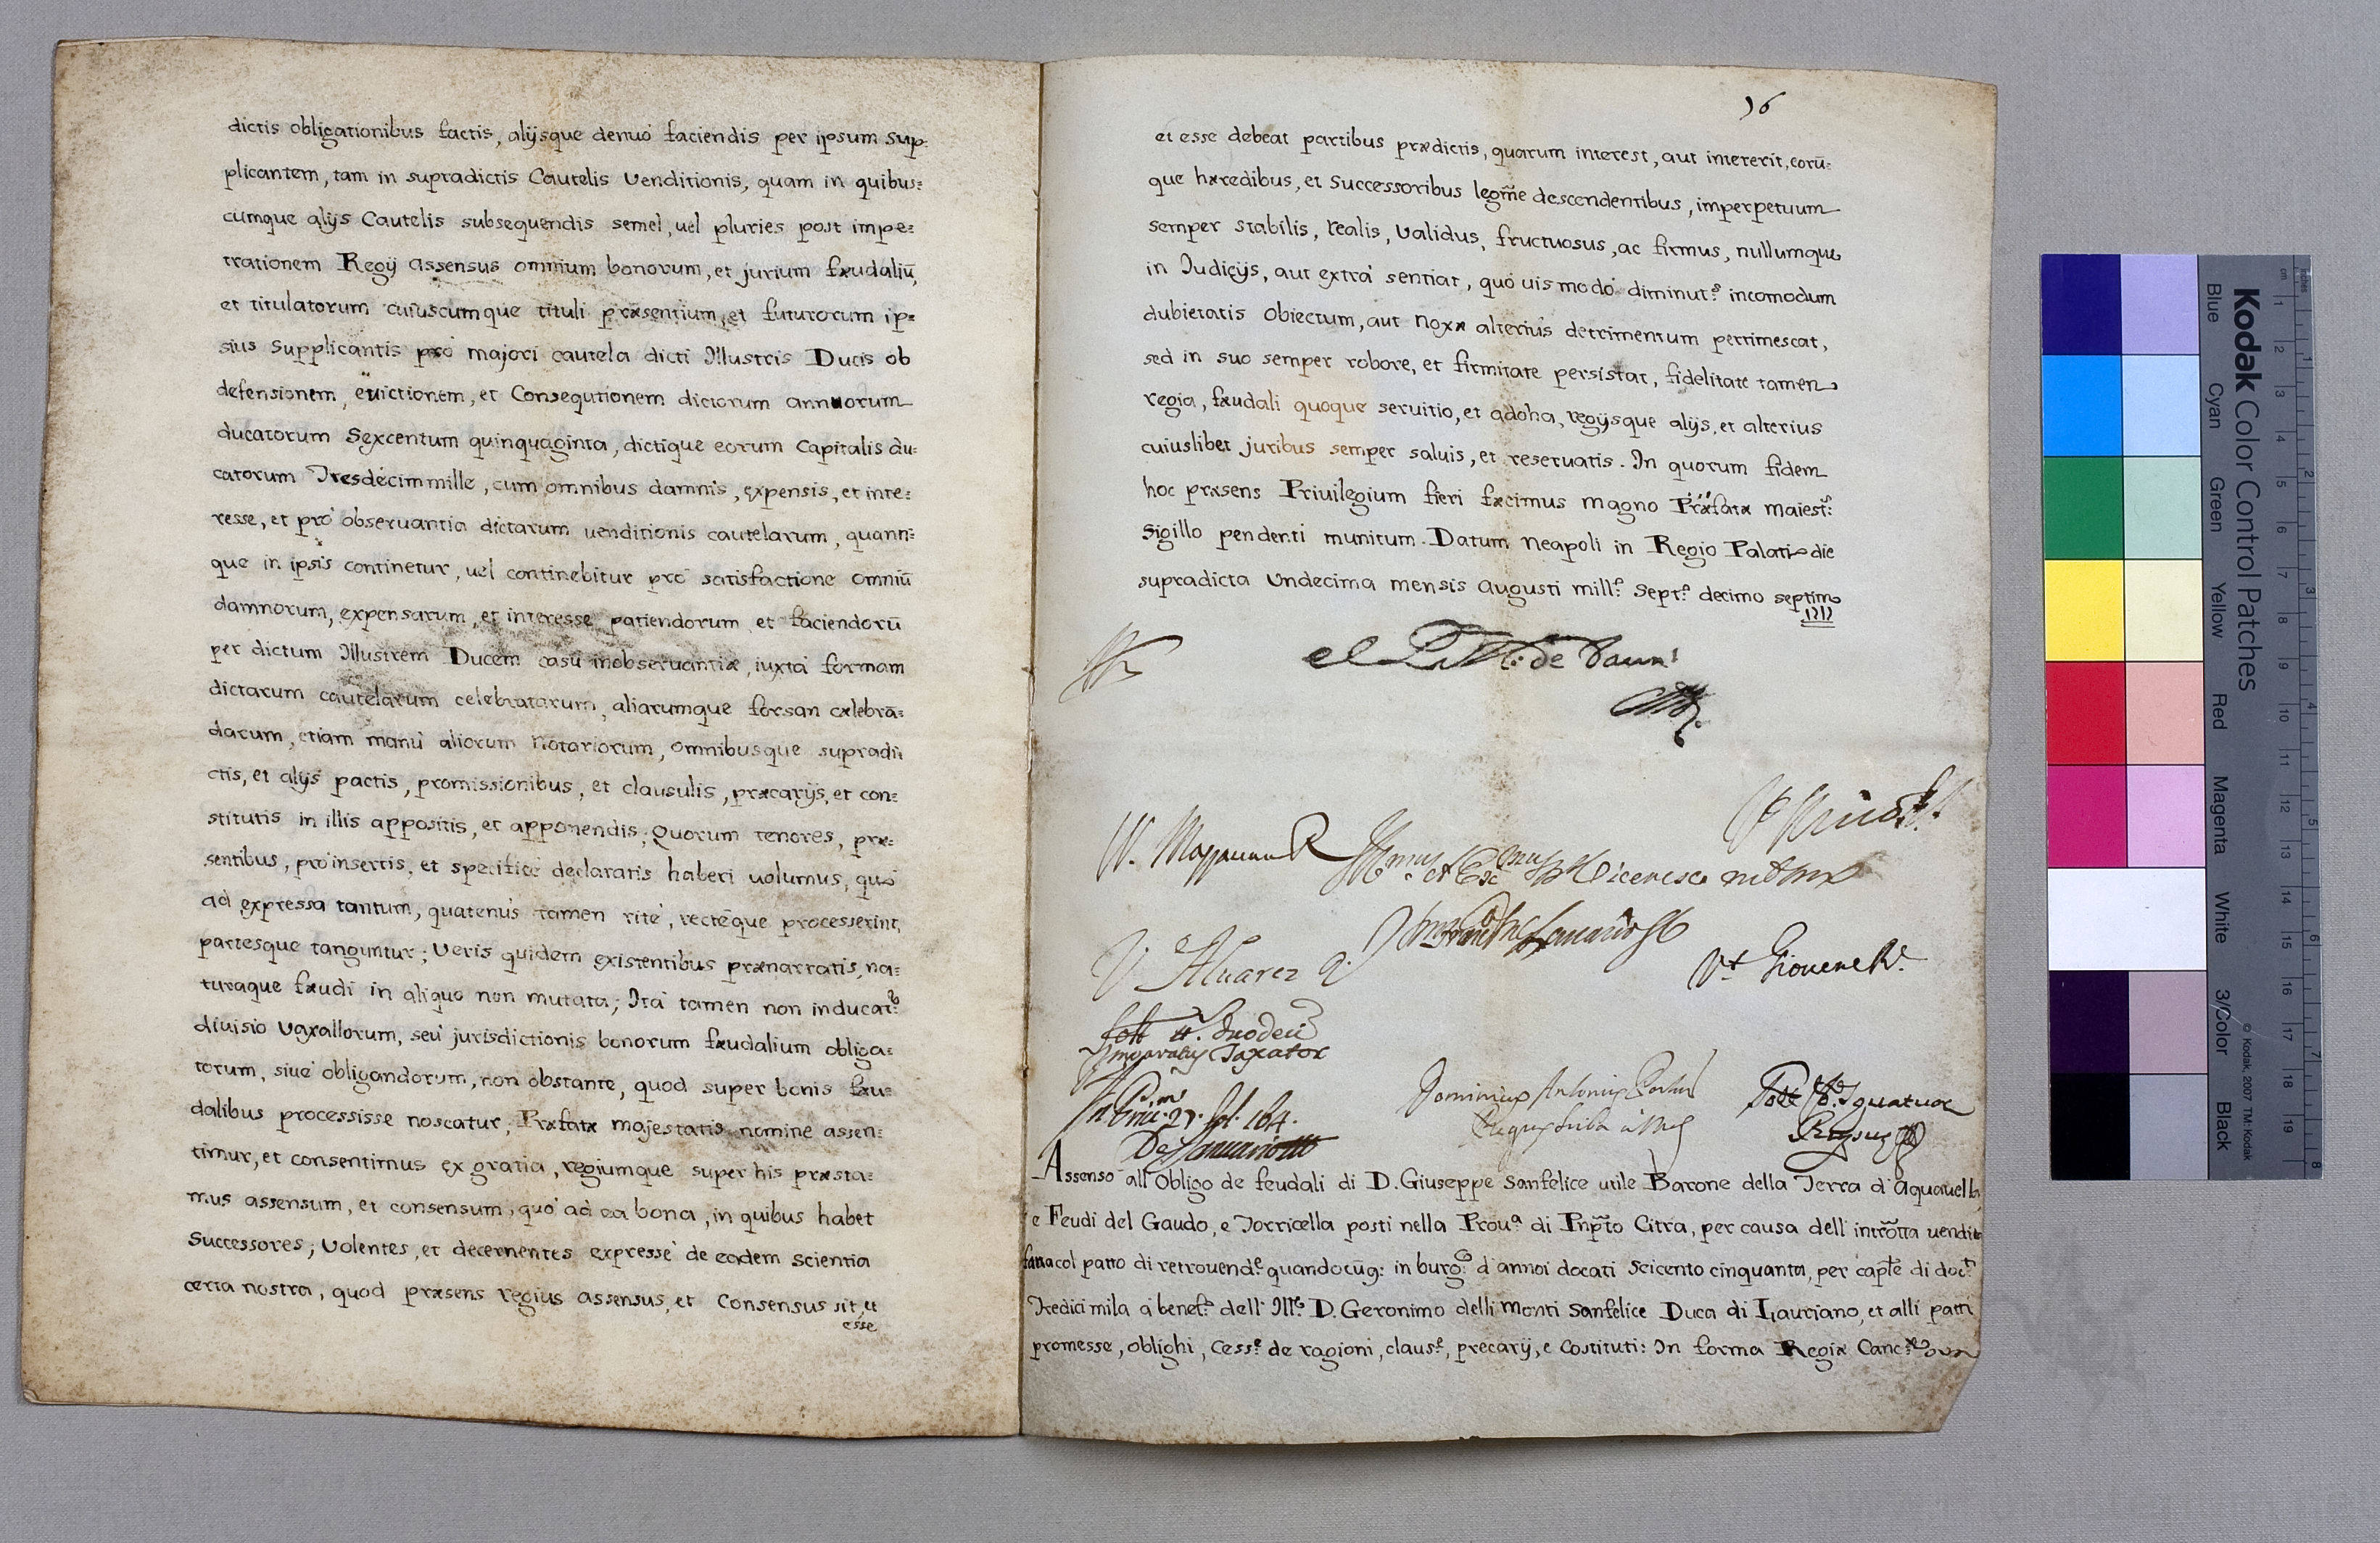 dictis obligationibus factis, alijsque denuò faciendis per ipsum sup-
plicantem, tam in supradictis Cautelis Venditionis, quam in quibus=
cumque alijs Cautelis subsequendis semel, uel pluries post impe=
trationem Regij assensus omnium bonorum, et jurium fæudaliū,
et titulatorum cuiuscumque tituli præsentium, et futurorum ip=
sius Supplicantis prò majori cautela dicti Illustris Ducis ob
defensionem, euictionem, et Consequtionem dictorum annuorum
ducatorum Sexcentum quinquaginta, dictique eorum Capitalis du=
catorum Tresdecim mille, cum omnibus damnis, expensis, et inte=
resse, et prò obseruantia dictarum uenditionis cautelarum, quanti=
que in ipsis continetur, uel continebitur prò satisfactione omniū
damnorum, expensarum, et interesse patiendorum et faciendorū
per dictum Illustrem Ducem casù inobseruantiæ, iuxtà formam
dictarum cautelarum celebratarum, aliarumque forsan cælebrā=
darum, etiam manù aliorum Notariorum, omnibusque supradi
ctis, et alijs pactis, promissionibus, et clausulis, præcarijs, et con=
stitutis in illis appositis, et apponendis; Quorum tenores, præ=
sentibus, prò insertis, et specificè declaratis haberi uolumus, quò
ad expressa tantum, quatenùs tamen ritè, rectèque processerint,
partesque tanguntur; Veris quidem existentibus prænarratis, na=
turaque fæudi in aliquo non mutata; Ità tamen non inducat.r
diuisio Vaxallorum, seù jurisdictionis bonorum fæudalium obliga=
torum, siuè obligandorum, non obstante, quod super bonis fæu=
dalibus processisse noscatur; Præfatæ majestatis nomine assen=
timur, et consentimus ex gratia, regiumque super his præsta=
mus assensum, et consensum, quò ad ea bona, in quibus habet
Successores; Volentes, et decernentes expressè de eadem scientia
certa nostra, quod præsens regius assensus, et Consensus sit, et
esse
16
et esse debeat partibus prædictis, quarum interest, aut intererit, eorū=
que hæredibus, et Successoribus legm̄e descendentibus, imperpetuum
semper stabilis, realis, Validus, fructuosus, ac firmus, nullumque
in Judicijs, aut extrà sentiat, quòuismodò diminut.s incomodum
dubietatis obiectum, aut noxæ alteriùs detrimentum pertimescat,
sed in suo semper robore, et firmitate persistat, fidelitate tamen
regia, fæudali quoque seruitio, et adoha, regijsque alijs, et alterius
cuiuslibet juribus semper saluis, et reseruatis. In quorum fidem
hoc præsens Priuilegium fieri fæcimus magno Præfatæ maiest.s
Sigillo pendenti munitum. Datum Neapoli in Regio Palatio die
supradicta Undecima mensis Augusti mill.o Sept.o decimo septimo
1717
de Daun
V. Alvarez R.
Vt Giouene R.
Taxator
fol. 164.
De Januario
Dominicus Antonius
Assenso all'Obligo de feudali di D. Giuseppe Sanfelice utile Barone della Terra d'Aquauella,
e Feudi del Gaudo, e Torricella posti nella Prou.a di Pnp̄to Citra, per causa dell'intrōtta uendita
fatta col patto di retrouend.e quandocūq: in burg.co d'annoi docati Seicento cinquanta, per cap̄le di doc.ti
Tredici mila à benef.o dell'Ill.e D. Geronimo delli Monti Sanfelice Duca di Lauriano, et alli patti
promesse, oblighi, Cess.e de ragioni, claus.e, precarij, e Costituti: In forma Regiæ Canc.æ
Kodak Color Control Patches
Blue
Cyan
Green
Yellow
Red
Magenta
White
3/Color
Black
© Kodak, 2007 TM: Kodak
cm
1
2
3
4
5
6
7
8
9
10
11
12
13
14
15
16
17
18
19
inches
1
2
3
4
5
6
7
8